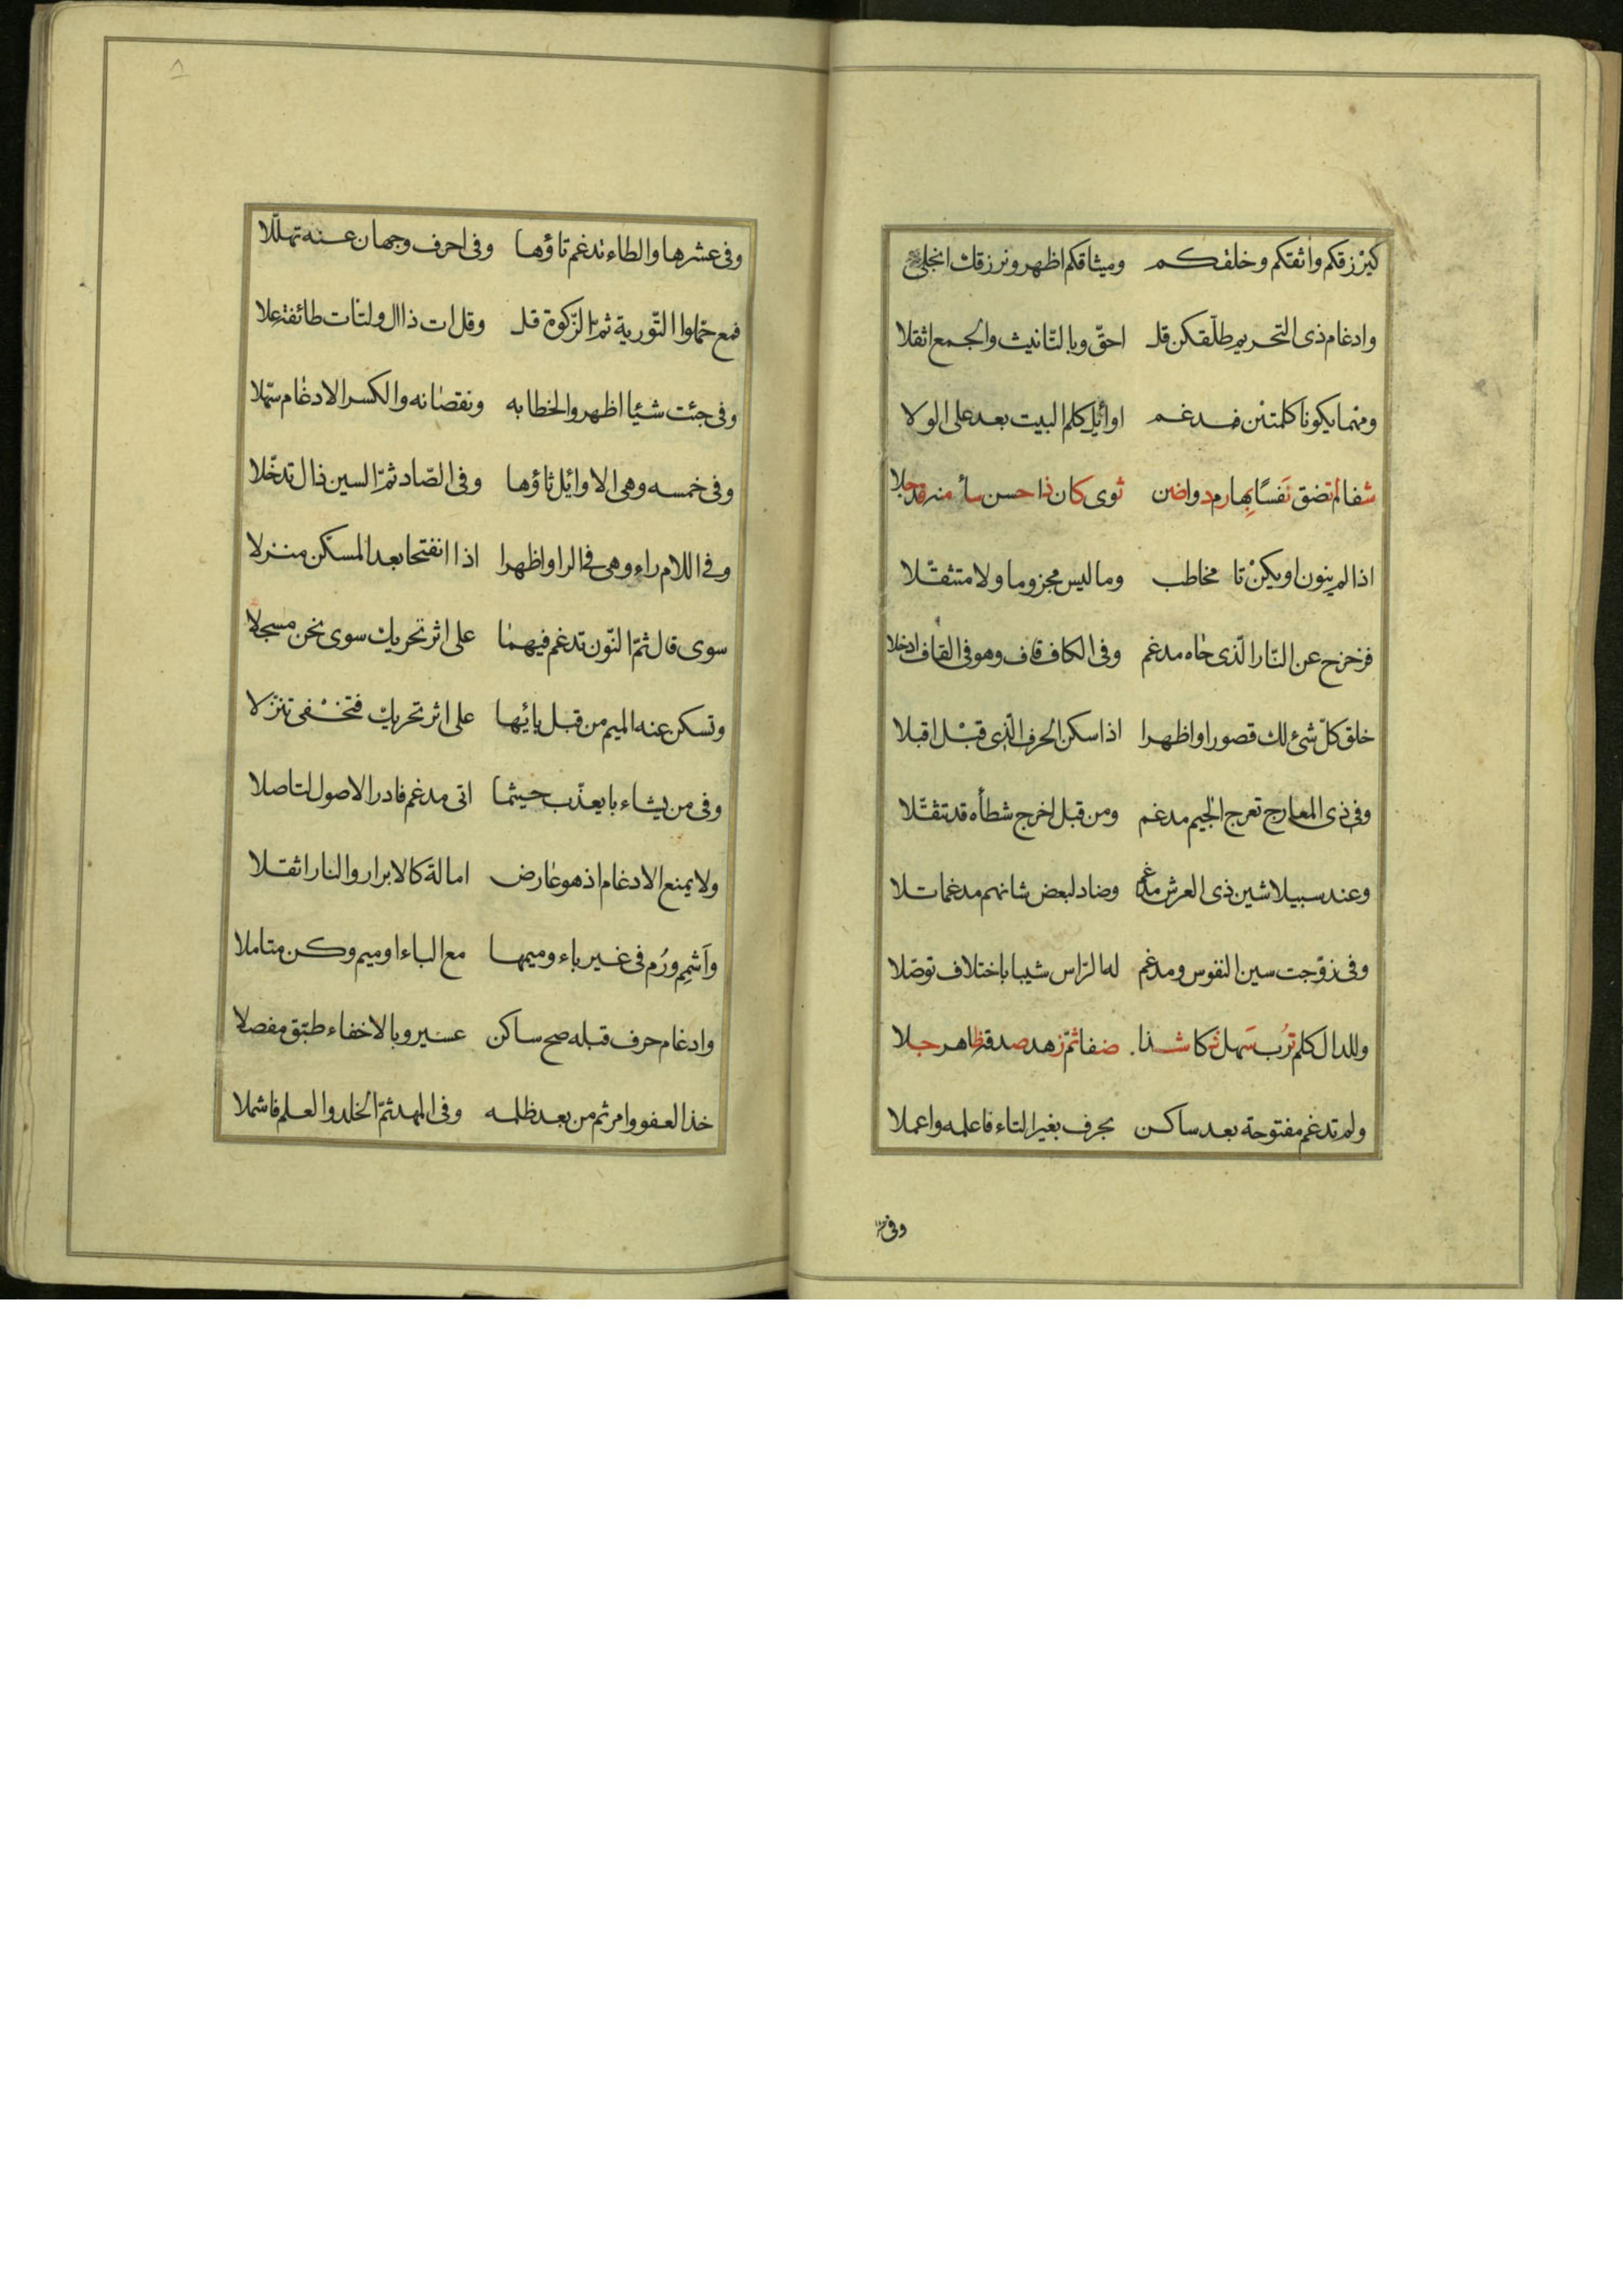 كيرزقكم واثقكم وخلقكم وميثاقكم اظهر ونرزقك انجلى
وادغام ذى التحريم طلّقكن قل احقّ وبالتّانيث والجمع اثقلا
ومهما يكونا كلمتين فمدغم اوائل كلم البيت بعد على الولا
شفا لم تضق نَفسًا بِها رم دواضن ثوى كان ذا حسن سأ منه قد جلا
اذا لم ينون او يكنْ تا مخاطب وما ليس مجزوما ولا متثقّلا
فزحزح عن النّار الّذى حاه مدغم وفى الكاف قاف وهو فى القاف ادخلا
خلق كلّ شئ لك قصورا واظهرا اذا سكن الحرف الّذى قبْل اقبلا
وفى ذى المعارج تعرج الجيم مدغم ومن قبل اخرج شطأه قد تثقّلا
وعند سبيلا شين ذى العرش مدغم وضاد لبعض شانهم مدغما تلا
وفى زوّجت سين النفوس ومدغم له الرّاس شيبا باختلاف توصّلا
وللدال كلم تُرب سَهل ذكا شذا ضفا ثمّ زهد صدقه ظاهر جلا
ولم تدغم مفتوحة بعد ساكن بحرف بغير التاء فاعلمه واعملا
وفى
٨
وفى عشرها والطاء تدغم تاؤها وفى احرف وجهان عنه تهلّلا
فمع حمّلوا التّورية ثمّ الزّكوة قل وقل ات ذا ال ولتات طائفة علا
وفى جئت شيئا اظهروا لخطابه ونقصانه والكسر الادغام سهّلا
وفى خمسه وهى الاوائل ثاؤها وفى الصّاد ثمّ السين ذال تدخّلا
وفى اللام راء وهى فى الرا واظهرا اذا انفتحا بعد المسكّن منزلا
سوى قال ثمّ النّون تدغم فيهما على اثر تحريك سوى نحن مسجلا
وتسكن عنه الميم من قبل بائها على اثر تحريك فتخفى تنزّلا
وفى من يشاء با يعذّب حيثما اتى مدغم فادر الاصول لتاصلا
ولا يمنع الادغام اذ هو عارض امالة كالابرار والنار اثقلا
وَاَشمِم ورُم فى غير باء وميمها مع الباء او ميم وكن متاملا
وادغام حرف قبله صح ساكن عسير وبالاخفاء طبّق مفصلا
خذ العفو وامر ثم من بعد ظلمه وفى المهد ثمّ الخلد والعلم فاشملا